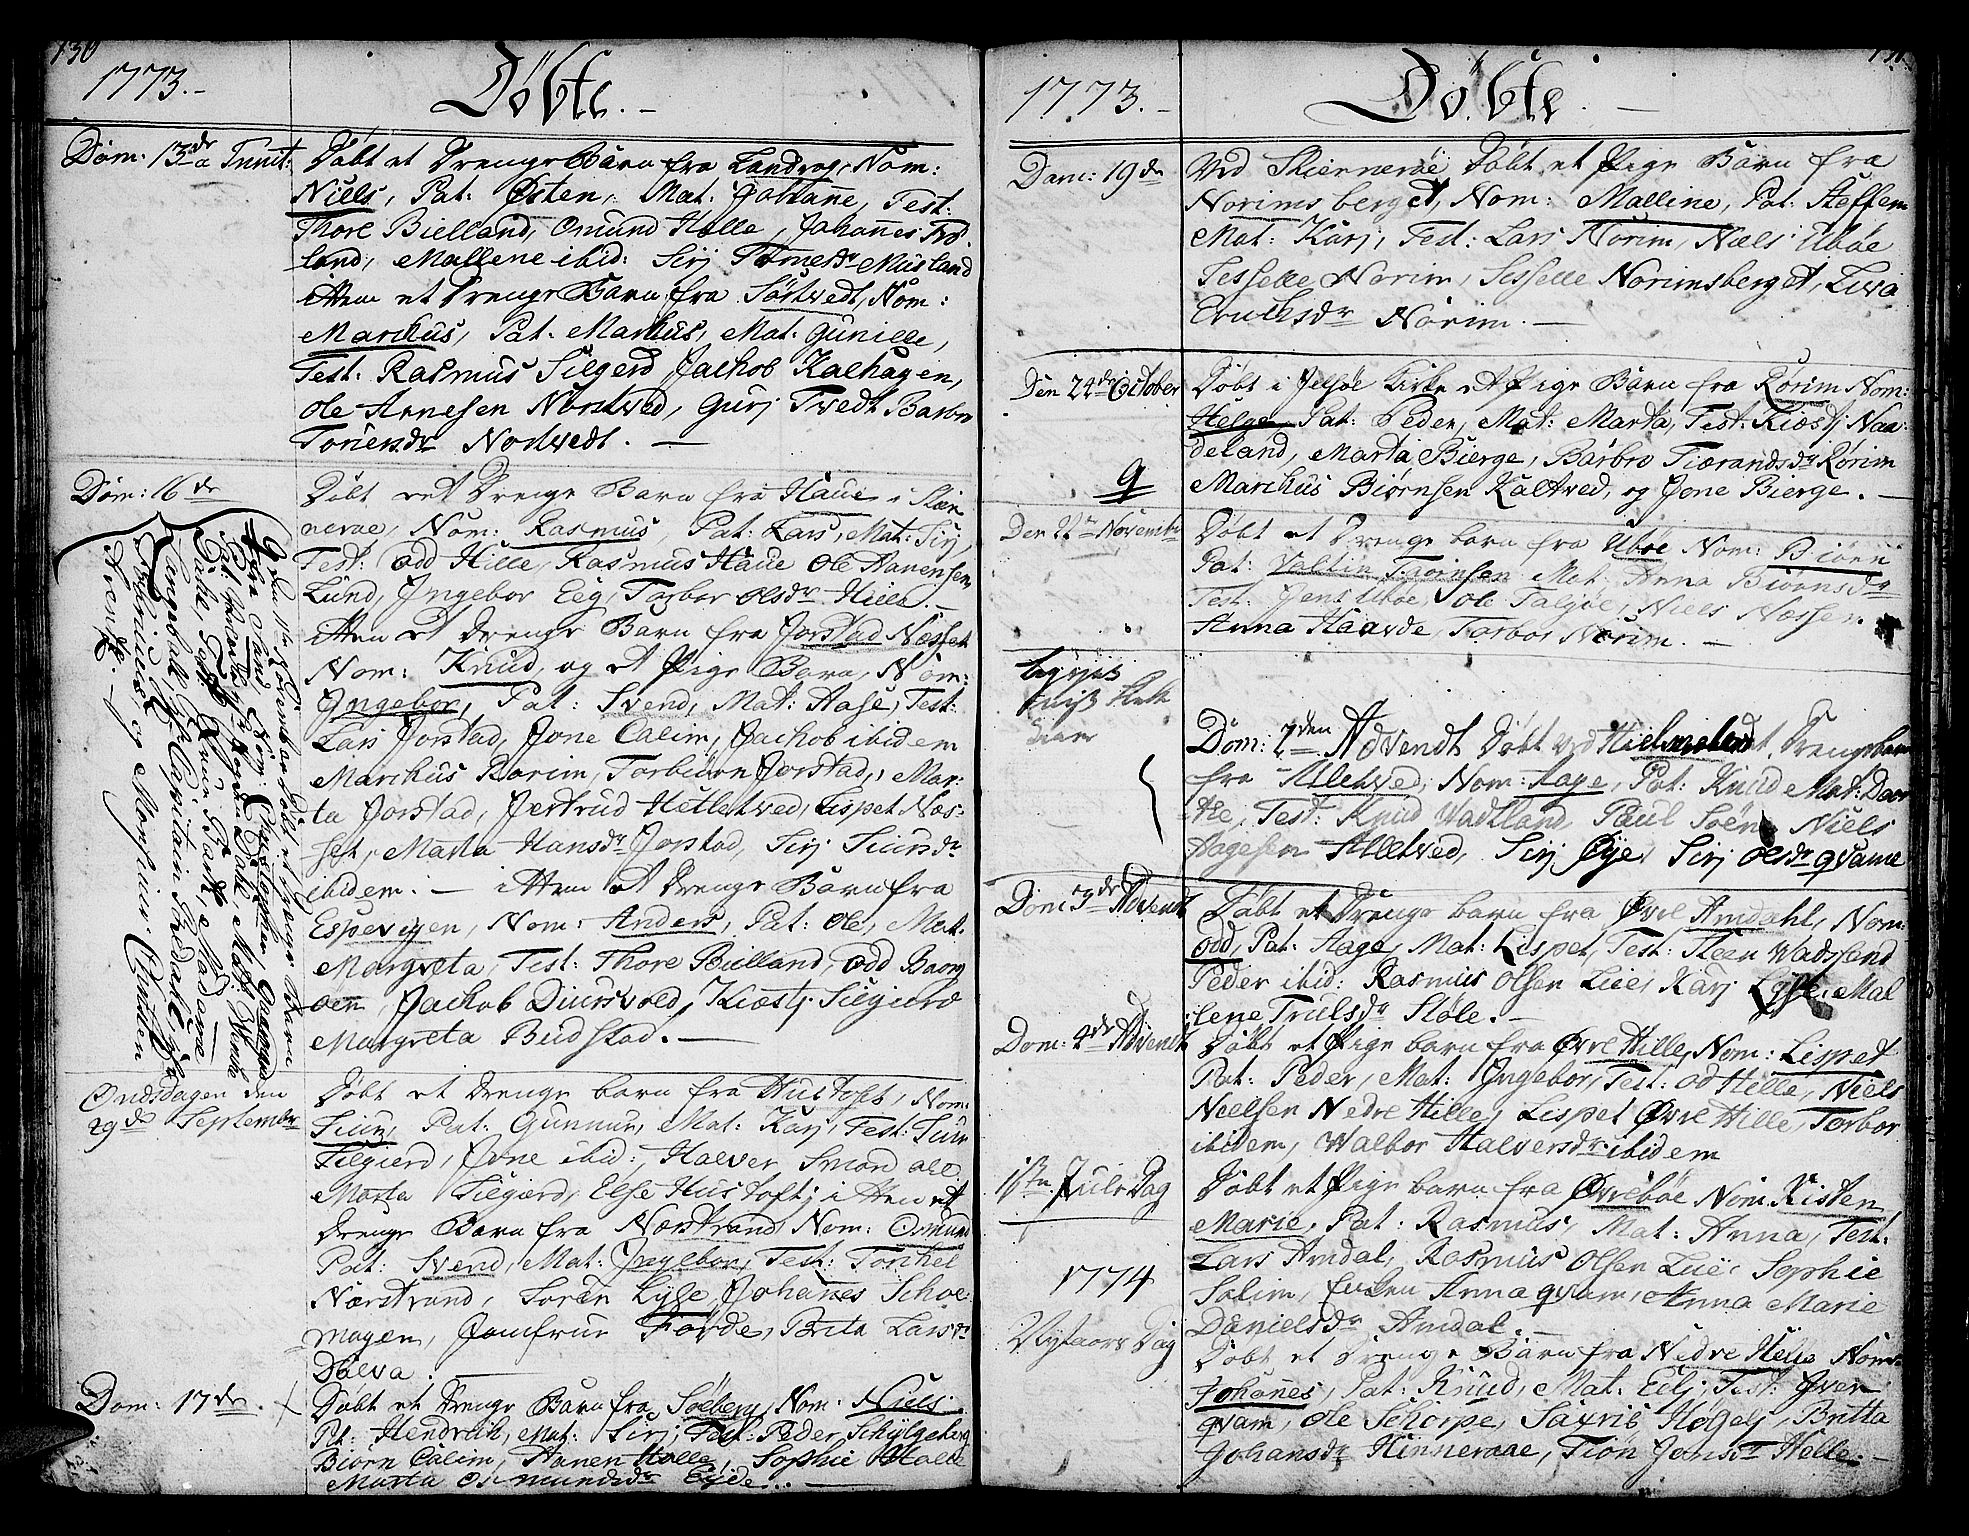 130
1773.-
Döbte.-
Dom: 13de Trinit:
Döbt et Drenge Barn fra Landvog, Nom:
Niels, Pat: Østen, Mat: Johanne, Test:
Thore Bielland, Omund Halle, Johannes Frø-
land, Mallene ibid: Sirj Tormodsdr Musland
item et Drenge Barn fra Sörtvedt, Nom:
Marchus, Pat: Markus, Mat: Gunille,
Test: Rasmus Silgerd Jachob Kalhagen,
Ole Arnesen Nordtved, Gurj Tvedt Barbro
Toriersdr Nordvedt. —
Dom: 16de
Döbt et Drenge Barn fra Haue i Skier-
neroe, Nom: Rasmus, Pat: Lars, Mat: Sirj,
Test: Odd Hille, Rasmus Haue Ole Aanensen
Lund, Jngebor Eeg, Torbor Olsdr Hille. —
item et Drenge Barn fra Jorstad Næsset
Nom: Knud og et Pige Barn, Nom:
Jngebor, Pat: Svend, Mat: Aase, Test:
Lars Jorstad, Jone Calim, Jachob ibidem
Marchus Rorim, Torbiörn Jorstad, Mar-
ta Jorstad, Jertrud Hetletved, Lispet Næs-
set, Marta Hansdr Jorstad, Sirj Siursdr
ibidem. — item et Drenge Barn fra
Espevigen, Nom: Anders, Pat: Ole, Mat:
Margreta, Test: Thore Bielland, Odd Baarg-
öen, Jachob Diursvold, Kiæstj Silgierd
Margreta Budstad. —
den 11te November Döbt et Drenge Barn
fra Sand, Nom: Christopher,
Capitain Tredahl
og Monsieur Christen
Svendse. —
Onsdagen den
29de September
Döbt et Drenge barn fra Hustoft, Nom:
Siur, Pat: Gunnur, Mat: Karj, Test: Siur
Silgierd, Jone ibid: Halver Smon all
Marta Silgierd, Else Hustoft; item et
Drenge Barn fra Nærstrand Nom: Osmund
Pat: Svend, Mat: Jngebor, Test: Torchel
Nærstrand, Soren Lyse, Johanes Schoe-
magen, Jomfrue Forde, Brita Larsdr
Dalva.
Dom: 17de.
Döbt et Drenge Barn fra Soeberg, Nom: Niels
Pat: Hendrich, Mat: Sirj, Test: Peder Schylgeberg
Biörn Calim, Aanen Halle, Sophie Halle
Marta Osmundsdr Eyde. —
131
1773.-
Döbte. —
Dom: 19de
Ved Skierneröe Döbt et Pige Barn fra
Norimsberget, Nom: Malline, Pat: Steffen
Mat: Karj, Test: Lars Norim, Niels Uböe
Sesselle Norim, Sesselle Norimsberget, Liva
Erichsdr Norim. —
Den 24de October
Döbt i Jelsöe Kirke et Pige Barn fra Rorim Nom:
Helge, Pat: Peder, Mat: Marta, Test: Kiæstj Naa-
deland, Marta Bierge, Barbro Tiærandsdr Rörim
Marchus Biörnsen Kaltved, og Jone Bierge. —
9
Den 22de November
Döbt et Drenge barn fra Uboe Nom: Biörn
Pat: Valtin Tiornsen Mat: Anna Biörnsdr
Test: Jens Uboe, Ole Talgöe, Niels Næssen
Anna Haavde, Torbor Norim. —
Dom: 2den Advendt Döbt ved Hielmeland et Drengebarn
fra Alletved, Nom: Aage, Pat: Knud Mat: Dor-
the, Test: Knud Vadtland, Paul Soen Niels
Aagesen Alletved, Sirj Øye, Sirj Olsdr Qvame
Dom: 3de Advendt
Döbt et Drenge barn fra Øvre Amdahl, Nom:
Odd, Pat: Aage, Mat: Lispet, Test: Steen Wadsland
Peder ibid: Rasmus Olsen Liie, Karj Lyse, Mal-
lene Trulsdr Stöle. —
Dom: 4de Advendt
Döbt et Pige barn fra Øvre Hille, Nom: Lispet
Pat: Peder, Mat: Jngebor, Test: Od Hille, Niels
Nielsen Nedre Hille, Lispet Øvre Hille, Torbor
ibidem, Walbor Halversdr ibidem
1ste Jule Dag
Döbt et Pige barn fra Øvreböe Nom: Kisten
Marie, Pat: Rasmus, Mat: Anna, Test:
Lars Amdal, Rasmus Olsen Liie, Sophie
Salim, Enken Anna Qvam, Anna Marie
Danielsdr Amdal. —
1774
Nytaars Dag
Döbt et Drenge Barn fra Nedre Helle Nom:
Johanes, Pat: Knud, Mat: Eli, Test: Jver
Qvam, Ole Schorpe, Saxris Högelj, Britta
Johansdr Hinneraae, Tiön Jonsdr Helle. —